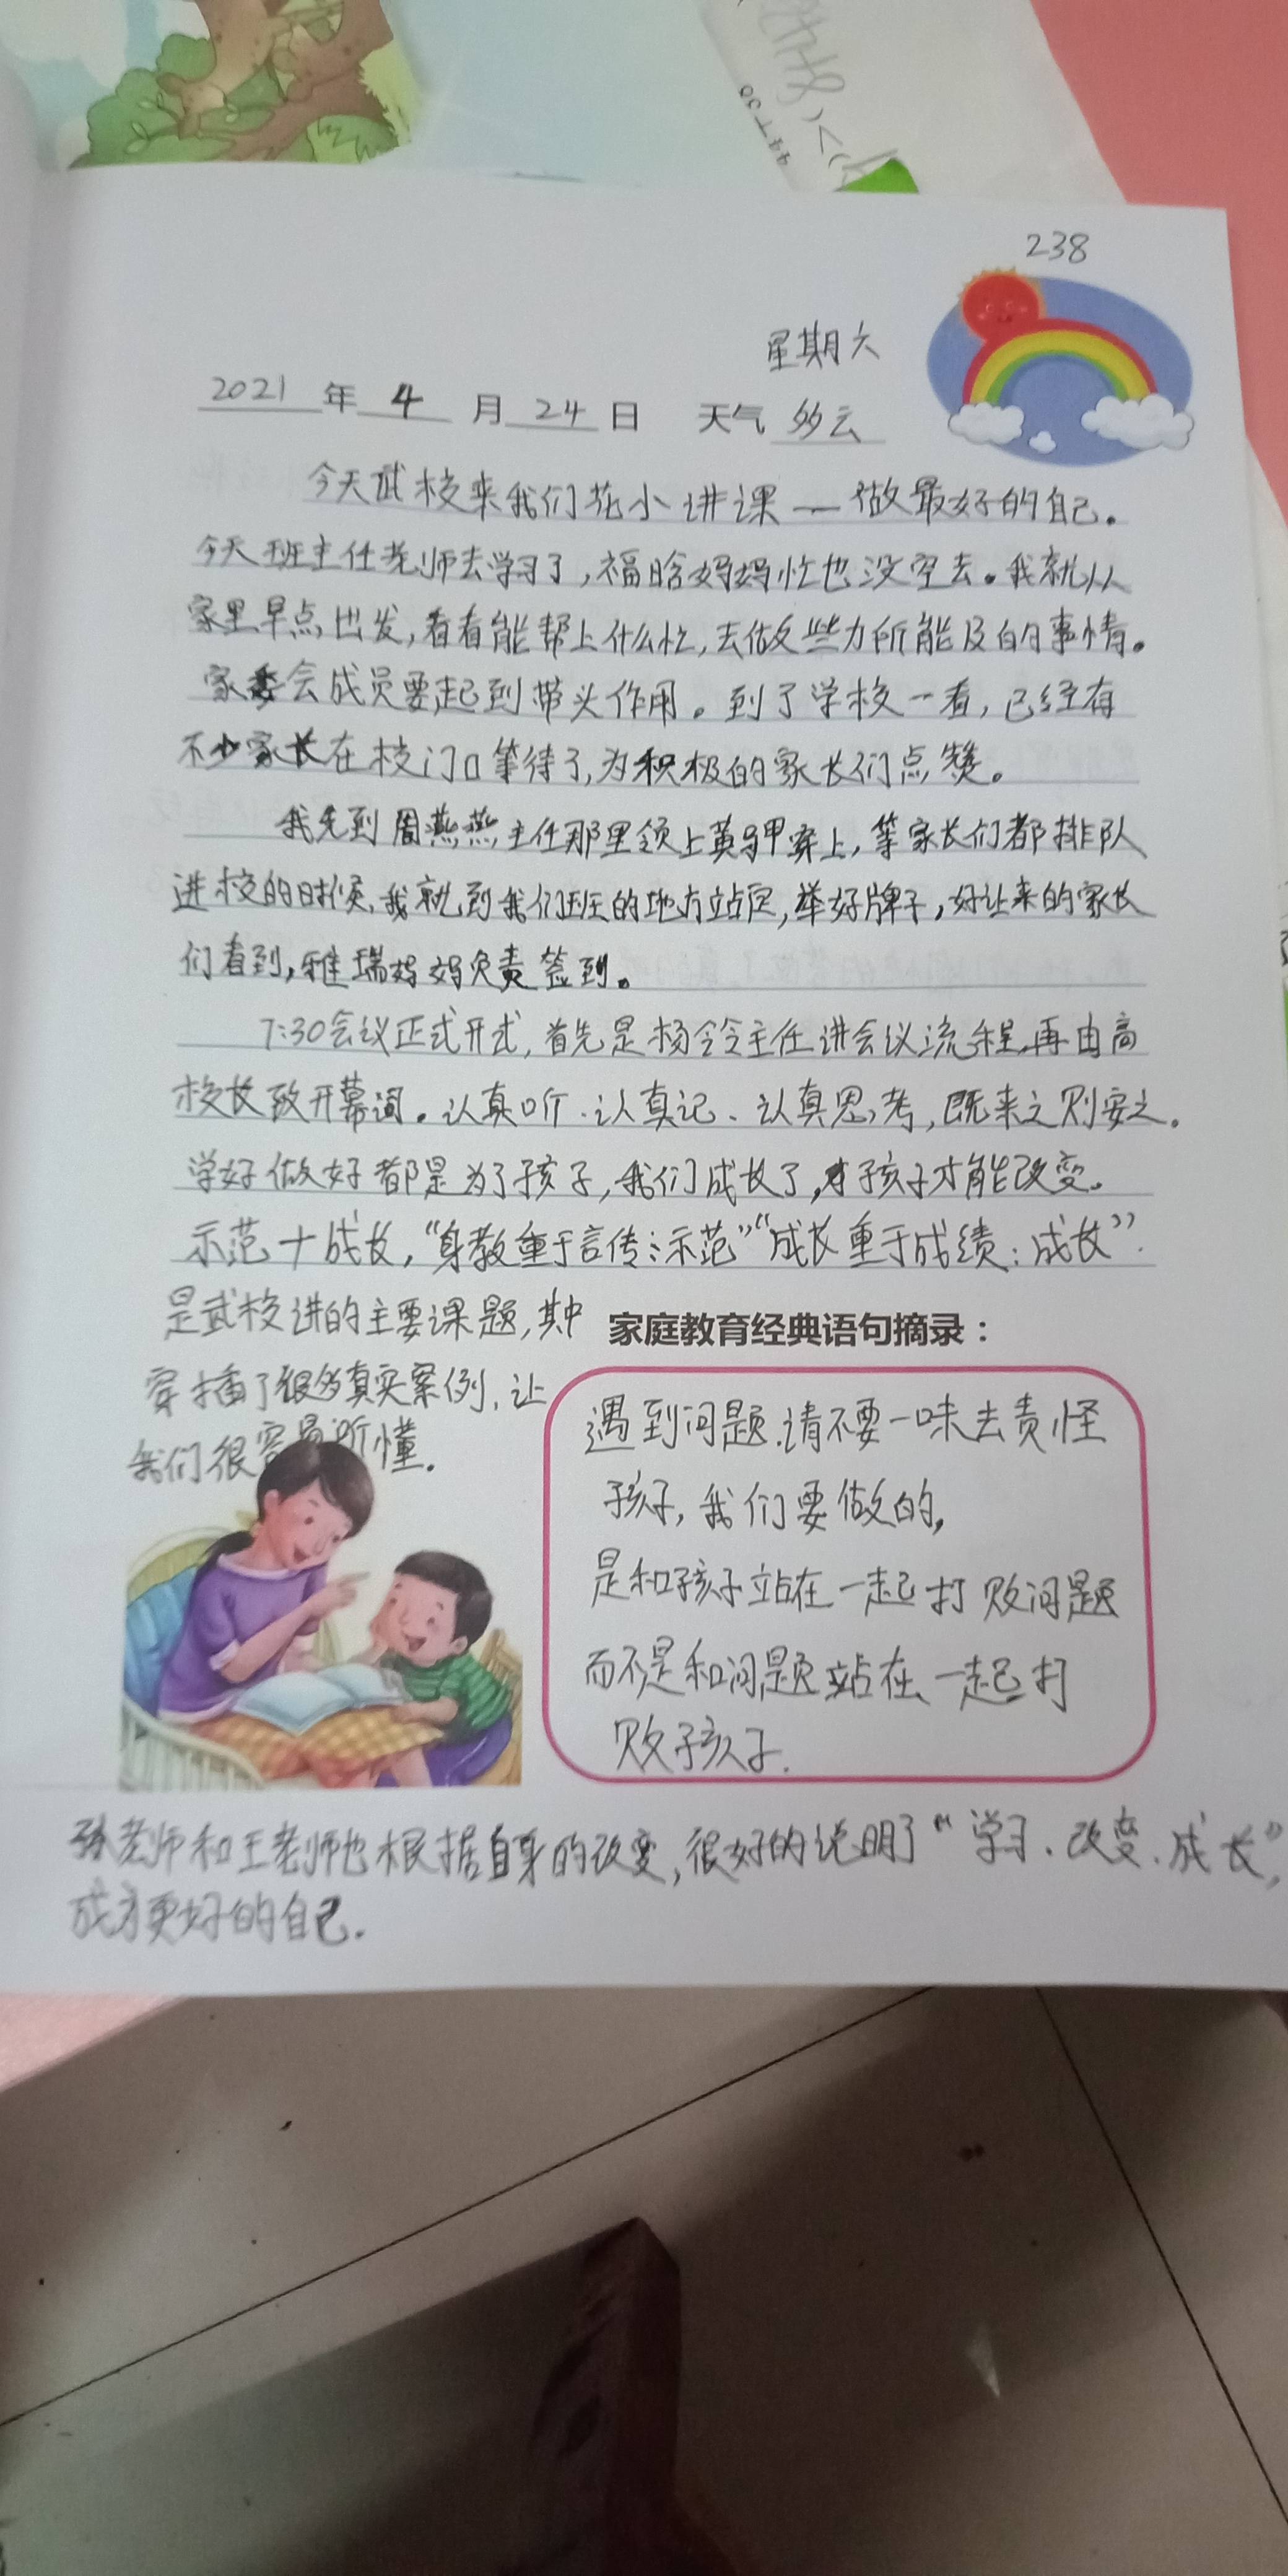 238
星期六
2021年4月24日 天气多云
今天武校来我们花小讲课——做最好的自己。
今天班主任老师去学习了,福晗妈妈忙也没空去。我就从
家里早点出发,看看能帮上什么忙,去做些力所能及的事情。
家委会成员要起到带头作用。到了学校一看,已经有
不少家长在校门口等待了,为积极的家长们点赞。
我先到周燕燕主任那里领上黄马甲穿上,等家长们都排队
进校的时候,我就到我们班的地方站定,举好牌子,好让来的家长
们看到,雅瑞妈妈负责签到。
7:30会议正式开式,首先是杨令主任讲会议流程,再由高
校长致开幕词。认真听、认真记、认真思考,既来之则安之。
学好做好都是为了孩子,我们成长了,孩子才能改变。
示范+成长,“身教重于言传:示范”“成长重于成绩:成长”.
是武校讲的主要课题,其中
穿插了很多真实案例,让
我们很容易听懂.
家庭教育经典语句摘录:
遇到问题.请不要一味去责怪
孩子,我们要做的,
是和孩子站在一起打败问题
而不是和问题站在一起打
败孩子.
孙老师和王老师也根据自身的改变,很好的说明了“学习、改变、成长”,
成为更好的自己.